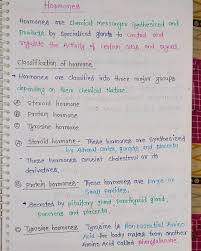 Hormones
Hormones are Chemical Messenger Synthesized and
Produces by Specialized glands to Control and
regulate the Activity of certain cells and organs.
Classification of hormone
Hormones are classified into three major groups
depending on their Chemical Nature.
① Steroid hormone
② Protein hormone
③ Tyrosine hormone
① Steroid hormone - These hormones are Synthesized
by Adrenal cortex, gonads and placenta
These hormones consist cholesterol or its
derivatives.
② Protein hormone - These hormones are large or
Small peptides.
Secreted by pituitary gland, parathyroid gland,
pancreas and placenta.
③ Tyrosine hormones - Tyrosine is Non-essential Amino
Acid the body makes from another
Amino Acid called phenylalanine.